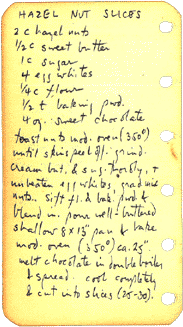 HAZEL NUT SLICES
2 c hazel nuts
1/2 c sweet butter
1 c sugar
4 egg whites
1/4 c flour
1/2 t baking powd.
4 oz. sweet chocolate
toast nuts mod. oven (350°)
until skins peel off. grind.
cream but. & sug. thorbly. +
unbeaten egg whites, grad. mix
nuts. sift fl. & bak. powd &
blend in. pour well-buttered
shallow 8x13" pan & bake
mod. oven (350°) ca. 25".
melt chocolate in double boiler
& spread. cool completely
& cut into slices (25-30).